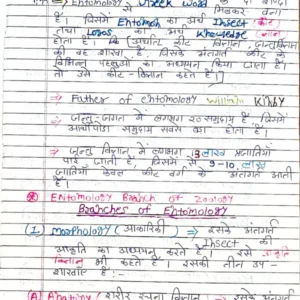 Greek Word के दो शब्दों
से मिलकर बना
है। जिसमें Entomon का अर्थ Insect कीट
तथा Logos का अर्थ Knowledge
होता है। कि अर्थात कीट विज्ञान जन्तुविज्ञान
की वह शाखा है, जिसके अंतर्गत कीट के
विभिन्न पहलुओं का अध्ययन किया जाता है।
तो उसे कीट-विज्ञान कहते है।
⇒ Father of entomology William Kirby
⇒ जन्तु-जगत में लगभग समुदाय है जिसमें
आर्थोपोडा समुदाय सबसे बड़ा होता है।
⇒ जन्तु विज्ञान में लगभग 13 लाख प्रजातियाँ
पाई जाती हैं, जिसमें से 9-10 लाख
जातियाँ केवल कीट वर्ग के अंतर्गत आती
हैं।
Entomology Branch of Zoology
Branches of Entomology
(1.) Morphology (आकारिकी) ⇒ इसके अंतर्गत
Insect की
आकृति का अध्ययन करते है। इसे आकृति
विज्ञान भी कहते है। इसकी तीन उप-
शाखाएँ है:-
(A) Anatomy (शरीर रचना विज्ञान) ⇒ इसके अंतर्गत